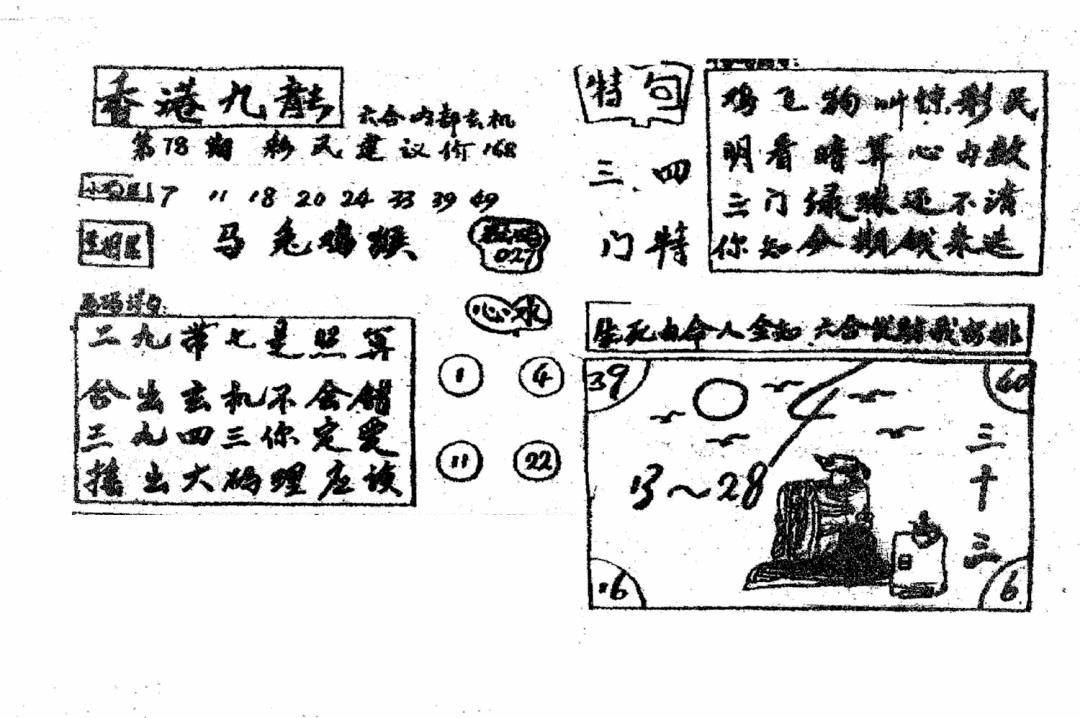 香港九龍
六合内部玄机
第78期 彩民建议价168
7 11 18 20 24 33 39 49
马兔鸡猴
027
心水
二九带七是照算
合出玄机不会错
三九四三你定爱
摇出大码理应该
1 4
11 22
特句
三、四
门特
鸡飞狗叫惊彩民
明看暗算心内数
三门绿珠还不清
你知今期钱来进
生死由命人全知 六合发财我安排
39
60
13～28
三十三
日
16
6